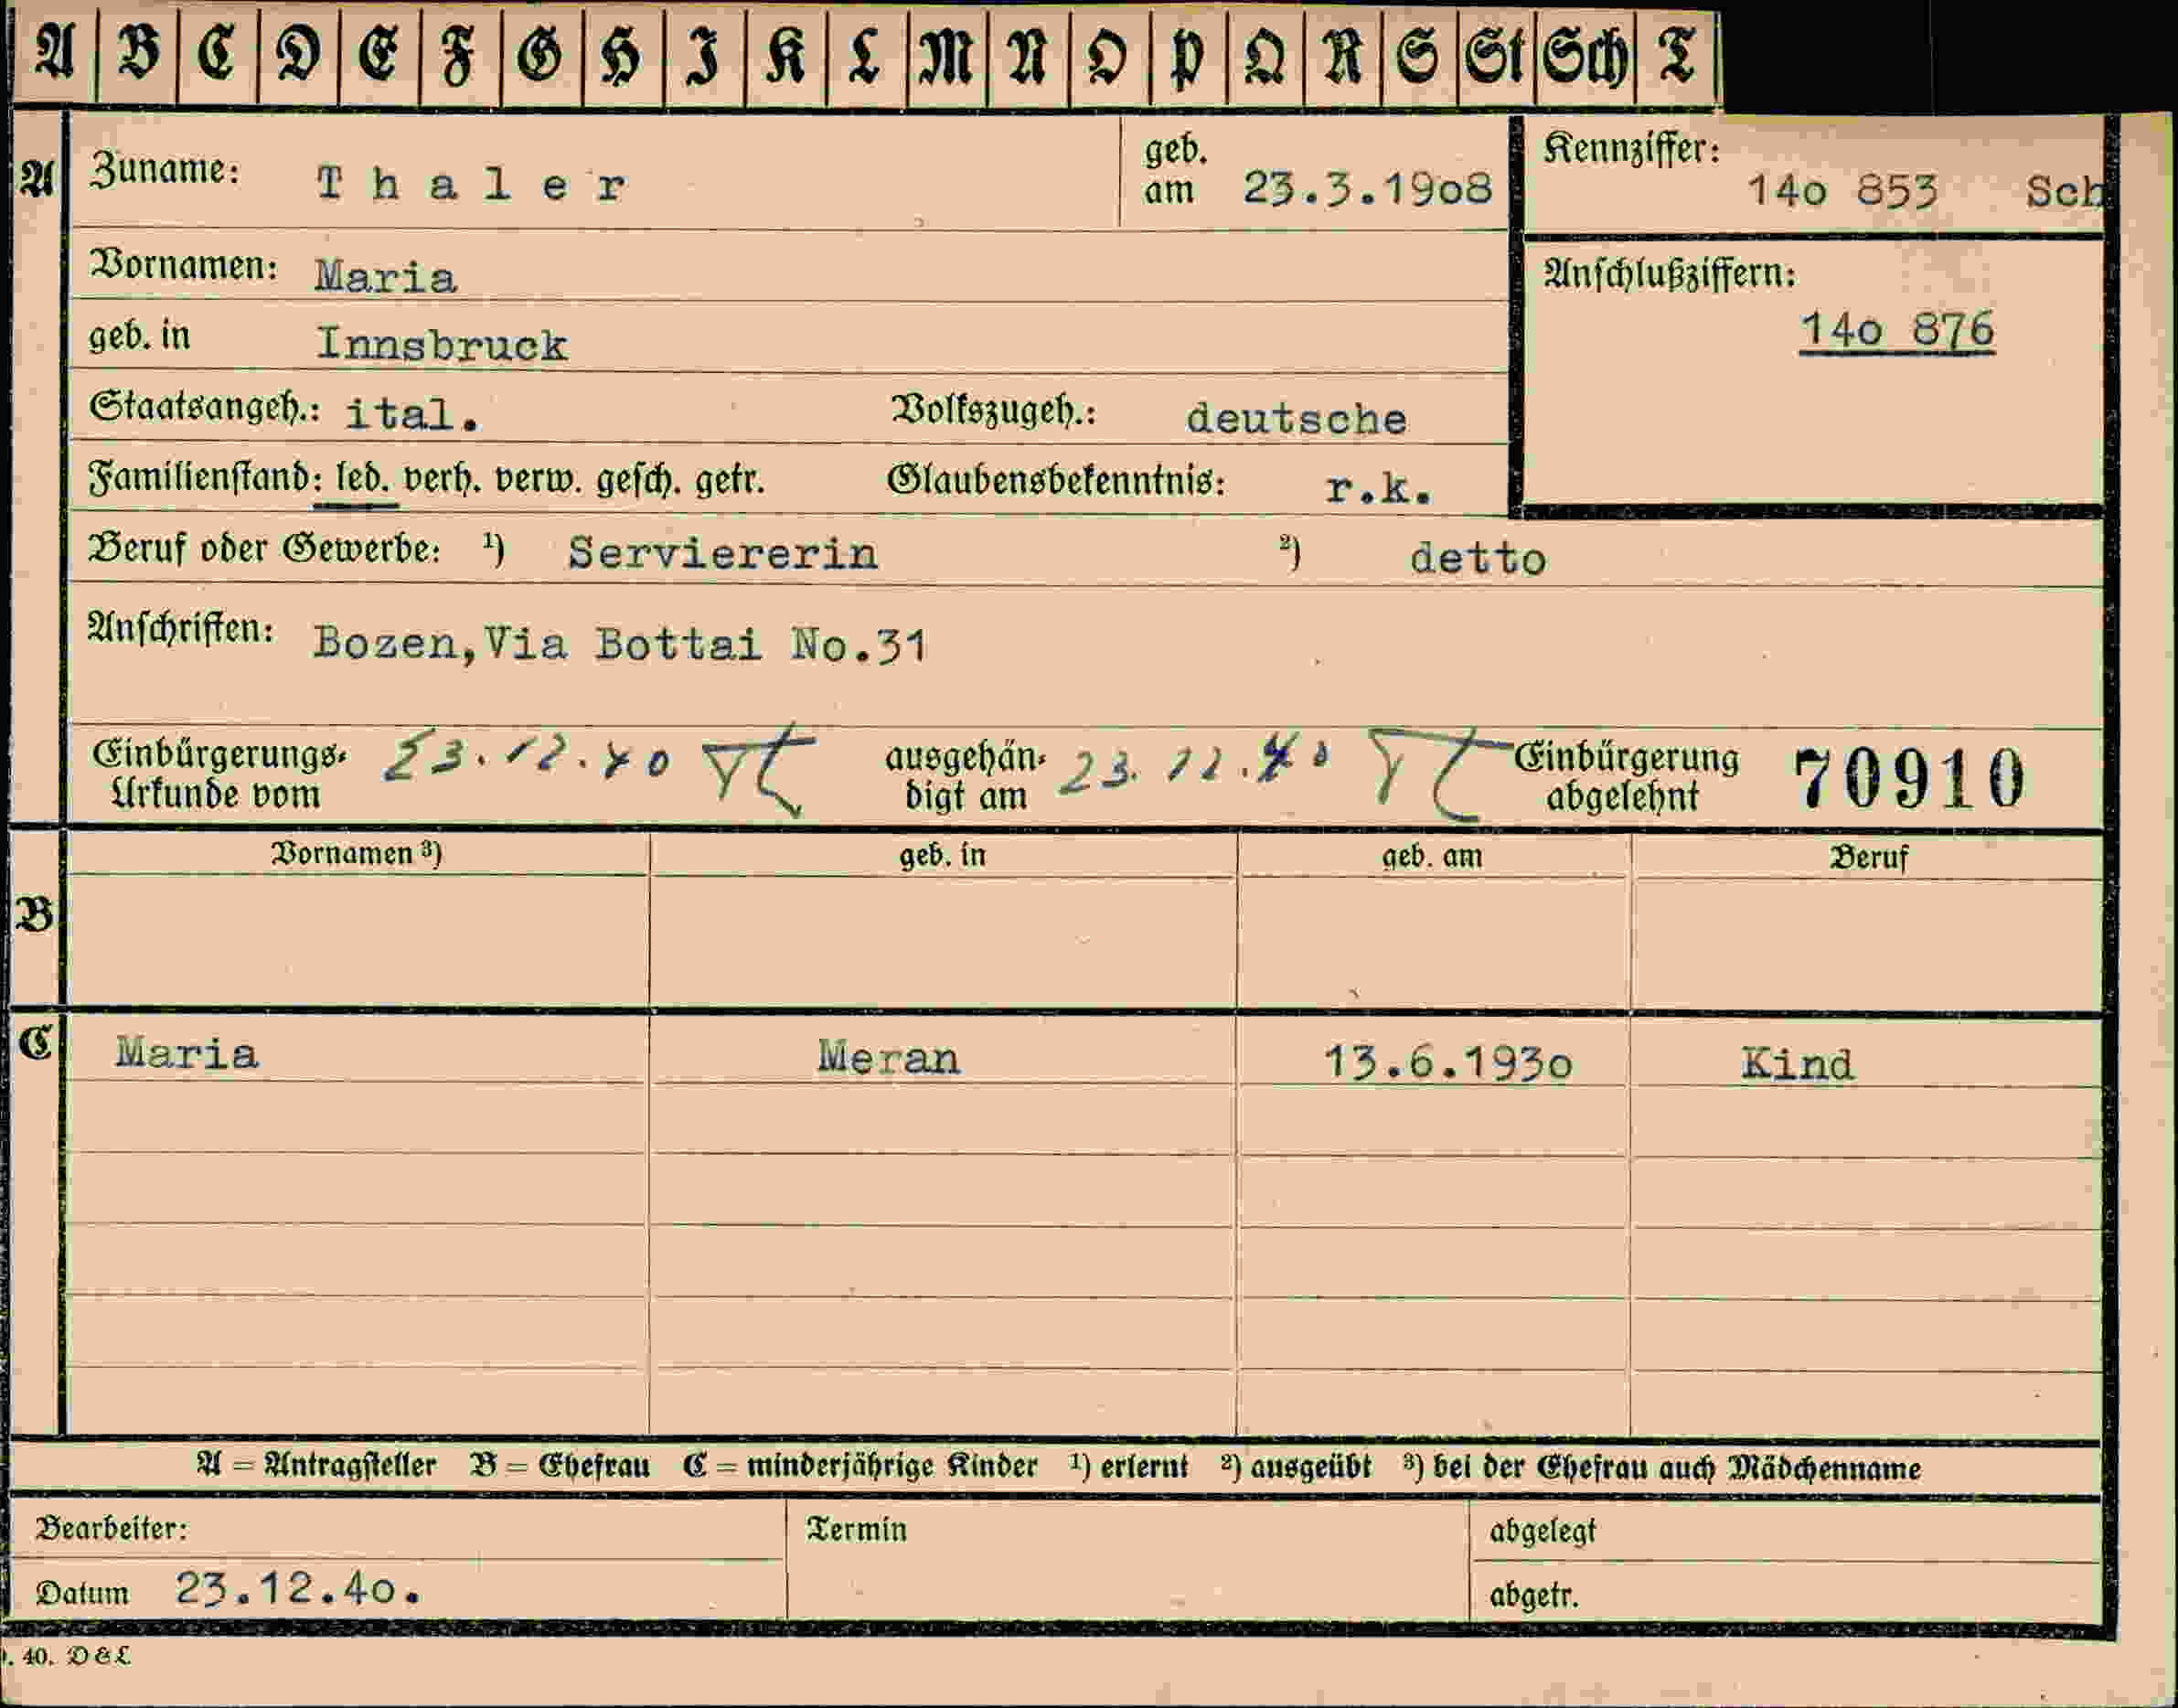 A B C D E F G H I K L M N O P Q R S St Sch T
A Zuname: Thaler geb. am 23.3.19o8 Kennziffer: 14o 853 Sch
Vornamen: Maria Anschlußziffern:
14o 876
geb. in Innsbruck
Staatsangeh.: ital. Volkszugeh.: deutsche
Familienstand: led. verh. verw. gesch. getr. Glaubensbekenntnis: r.k.
Beruf oder Gewerbe: ¹) Serviererin ²) detto
Anschriften: Bozen,Via Bottai No.31
Einbürgerungs- 23.12.40 ausgehän- 23.12.40 Einbürgerung 70910
Urkunde vom digt am abgelehnt
Vornamen ³) geb. in geb. am Beruf
B
C Maria Meran 13.6.193o Kind
A = Antragsteller B = Ehefrau C = minderjährige Kinder ¹) erlernt ²) ausgeübt ³) bei der Ehefrau auch Mädchenname
Bearbeiter: Termin abgelegt
Datum 23.12.4o. abgetr.
. 40. D&L